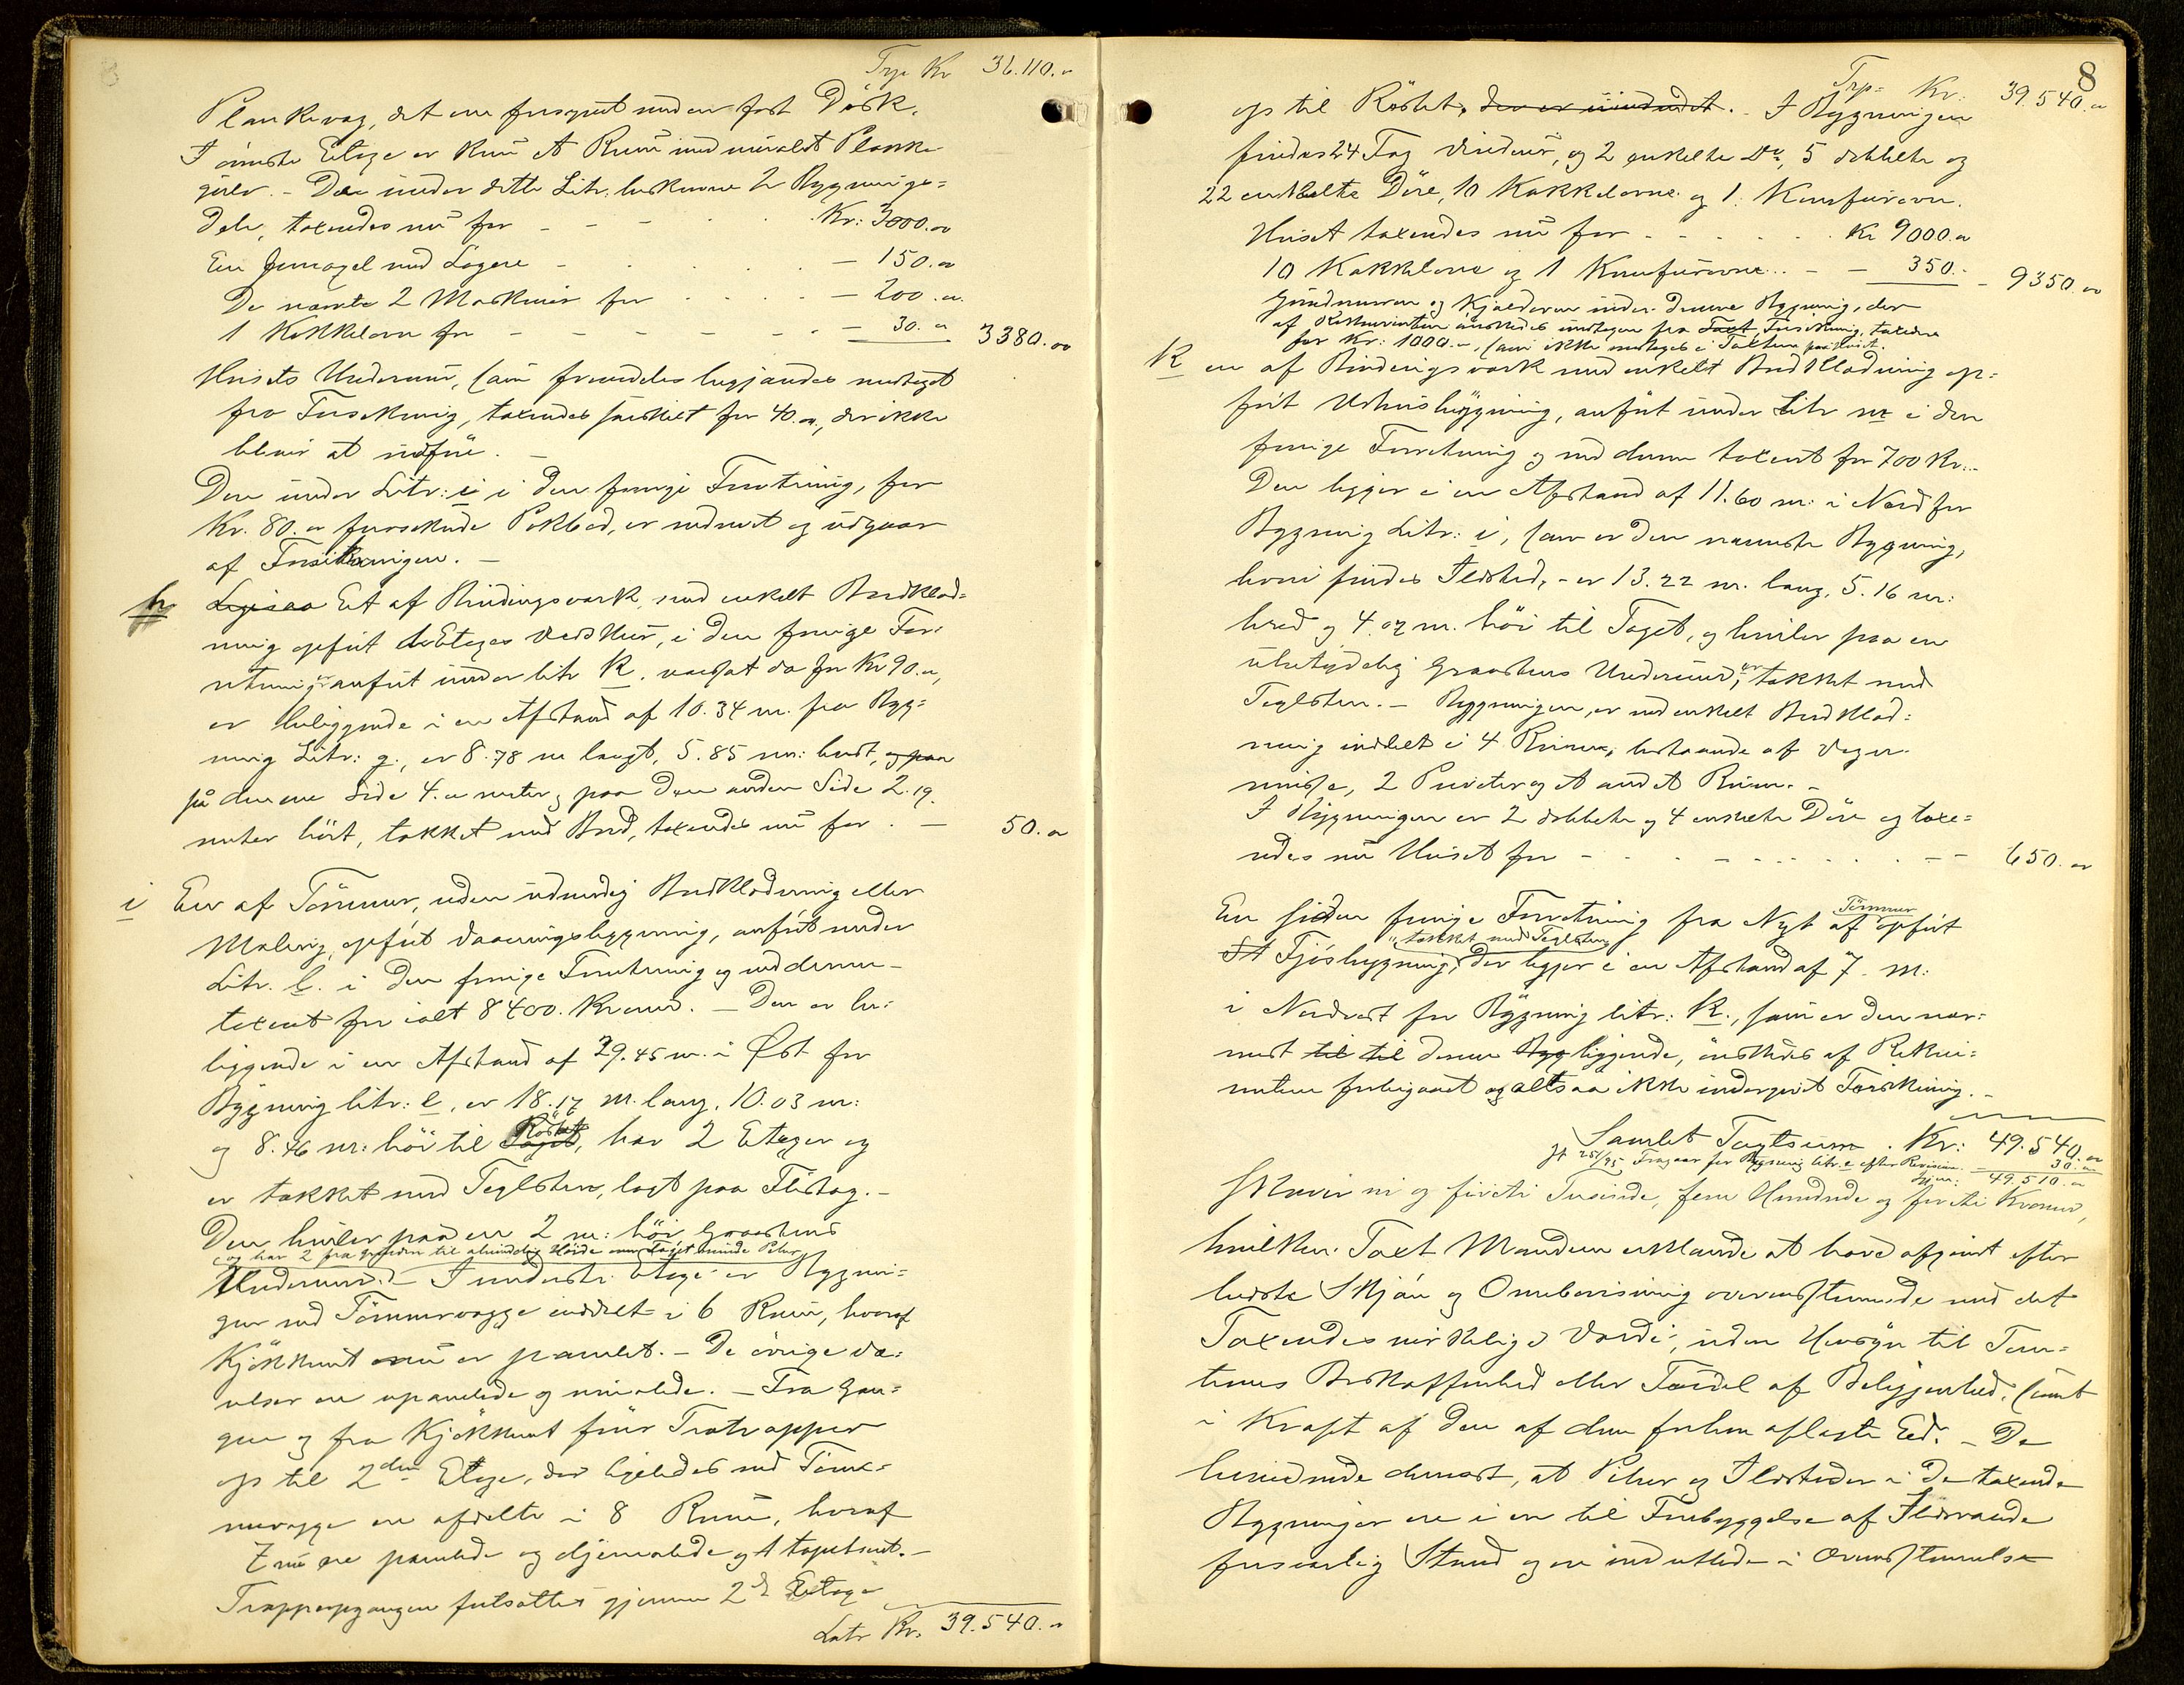 Trp. Kr 36.110.„
Plankevæg, det ene forsynet med en fast Disk.
I øverste Etage er kun et Rum med umalet Planke
gulv. – De under dette Litr. beskrevne 2 Bygnings=
dele, taxeredes nu for – – – Kr: 3000.00
En Jernaxel med Lagere – – 150.00
De nævnte 2 Maskiner for – – 200.„
1 Kakkelovn for – – – – – – 30.„ 3380.00
Husets Undermur, som fremdeles begjæredes undtaget
fra Forsikring, taxeredes særskilt for 40.„, der ikke
bliver at udføre. –
Den under Litr: i i den forrige Forretning, for
Kr. 80.„ forsikrede, er nedrevet og udgaar
af Forsikringen. –
h Et af Bindingsværk med enkelt Bordklæd=
ning opført Etages Vedskur, i den forrige For=
retning er anført under litr k. værdsat da for Kr 90.„,
er beliggende i en Afstand af 10.34 m. fra Byg=
ning Litr: g., er 8.78 m langt, 5.85 m: bredt, og paa
på den ene Side 4.„ meter og paa den anden Side 2.19
meter høit, tækket med Bord, taxeredes nu for . – 50.„
i En af Tømmer, uden udvendig Bordklædning eller
Maling, opført Vaaningsbygning, anført under
Litr. l. i den forrige Forretning og ved denne
taxeret for ialt 8400. Kroner. – Den er be=
liggende i en Afstand af 29.45 m. i Øst for
Bygning litr: e, er 18.17 m. lang, 10.03 m:
og 8.46 m: høi til Taget Røstet, har 2 Etager og
er tækket med Teglsten, lagt paa Flistag. –
Den hviler paa en 2 m: høi Graastens
og har 2 fra grunden til almindelig Høide over Taget murede Piber
Undermur. – I underste Etage er Bygnin=
gen ved Tømmervægge inddelt i 6 Rum, hvoraf
Kjøkkenet er panelet. – De øvrige Væ=
relser ere upanelede og umalede. – Fra Gan=
gen og fra Kjøkkenet fører Trætrapper
op til 2den Etage, der ligeledes ved Tøm=
mervægge er afdelte i 8 Rum, hvoraf
7 nu ere panelede og oljemalede og 1 tapetseret. –
Trappeopgangen fortsættes gjennem 2d Etage
Latr Kr: 39.540.„
8
Trp= Kr: 39.540.„
op til Røstet, der er uindredet. – I Bygningen
findes 24 Fag Vinduer, og 2 enkelte Do, 5 dobbelte og
22 enkelte Døre, 10 Kakkelovne og 1 Komfurovn.
Huset taxeredes nu for – – – Kr 9000.„
10 Kakkelovne og 1 Komfurovn.. – – 350.– – 9350.00
Grundmuren og Kjælderen under denne Bygning, der
af Rekvirenten ønskedes undtagen fra Forsikring, taxeres
for Kr: 1000.„, som ikke medtages i Taxten paa Huset.
k en af Bindingsværk med enkelt Bordklædning op=
ført Udhusbygning, anført under Litr m i den
forrige Forretning og ved denne taxeret for 700 Kr:–
Den ligger i en Afstand af 11.60 m: i Nord for
Bygning Litr: i, som er den nærmeste Bygning,
hvori findes Ildsted, – er 13.22 m. lang, 5.16 m:
bred og 4.07 m. høi til Taget, og hviler paa en
ubetydelig Graastens Undermur, er tækket med
Teglsten. – Bygningen, er ved enkelt Bordklæd=
ning inddelt i 4 Rum, bestaaende af Vogn=
remisse, 2 Priveter og et andet Rum. –
I Bygningen er 2 dobbelte og 4 enkelte Døre og taxe=
redes nu Huset for – – – – – 650.„
En siden forrige Forretning fra Nyt af Tømmer opført
tækket med Teglsten
Fjøsbygning, der ligger i en Afstand af 7. M:
i Nordvest for Bygning litr: k., som er den nær=
mest til til denne Byg liggende, ønskedes af Rekvi=
renten forbigaaet og altsaa ikke undergivet Forsikring. –
Samlet Taxtsum . Kr: 49.540.„
Jf 25/1 95 Fragaar for Bygning litr. e efter Revision. – 30.„
Igjen: 49.510.„
skriver ni og fireti Tusinde, fem Hundrede og fireti Kroner,
hvilken Taxt Mændene erklærede at have afgivet efter
bedste Skjøn og Overbevisning overensstemmende med det
Taxeredes virkelige Værdi, uden Hensyn til Tom=
ternes Beskaffenhed eller Fordel af Beliggenhed, samt
i Kraft af den af dem forhen aflagte Ed. – De
bevidnede dernæst, at Piber og Ildsteder i de taxerede
Bygninger ere i en til Forebyggelse af Ildsvaade
forsvarlig Stand og ere indrettede i Overensstemmelse